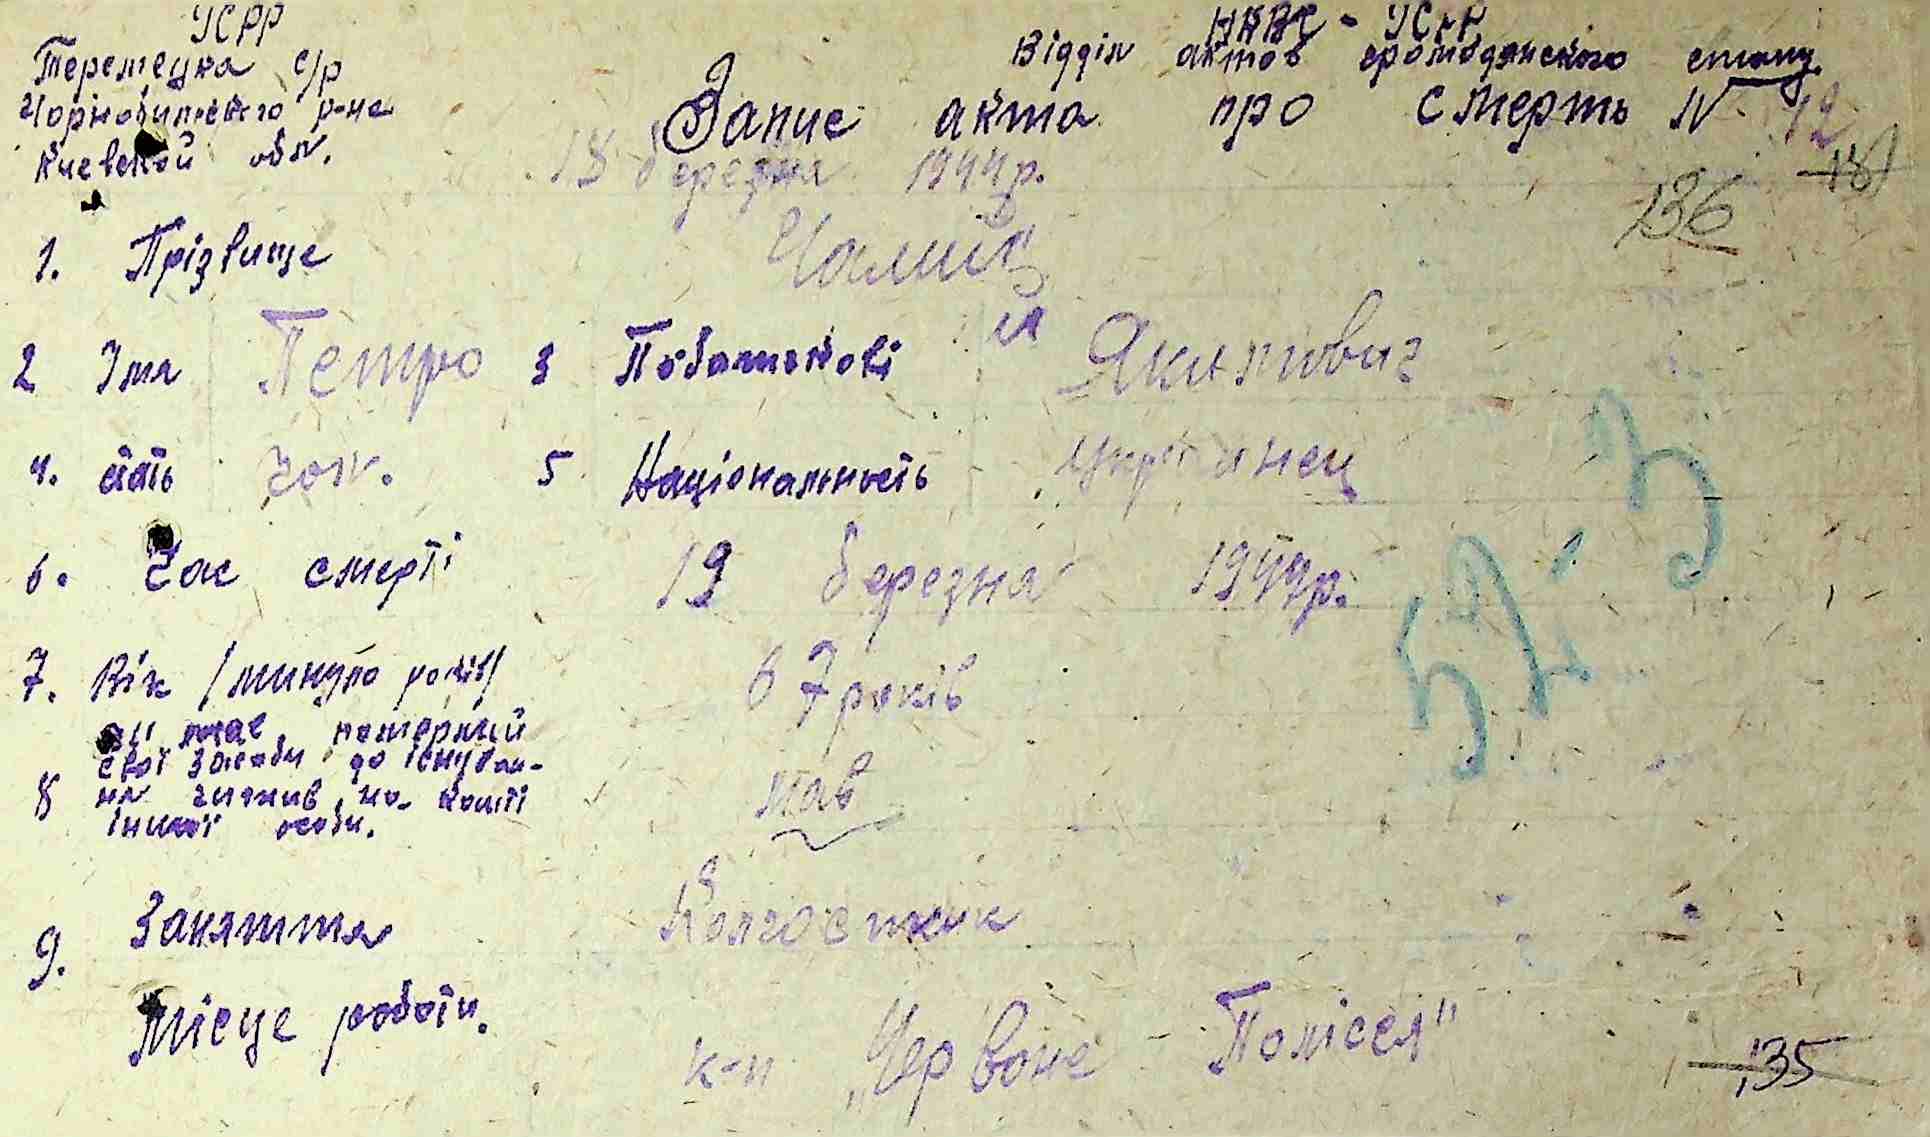 УСРР
Теремецка с/р
Чорнобильского р-на
Киевской обл.
НКВС - УСРР
Відділ актов громодянского стану.
Запис акта про смерть N 12
18 березня 1944 р.
136
1. Прізвище Чалий
2 Імя Петро 3 Побатькові Якимович
4. Стать чол. 5 Національность украінец
6. Час смерті 19 березня 1944р.
7. Вік /минуло років/ 67 років
8 чи мав померший свої засоби до існуван-
ня чи жив на кошті
іншої особи. мав
9. Заняття Колгоспник
Місце роботи. к-п „Червоне Полісся"
135